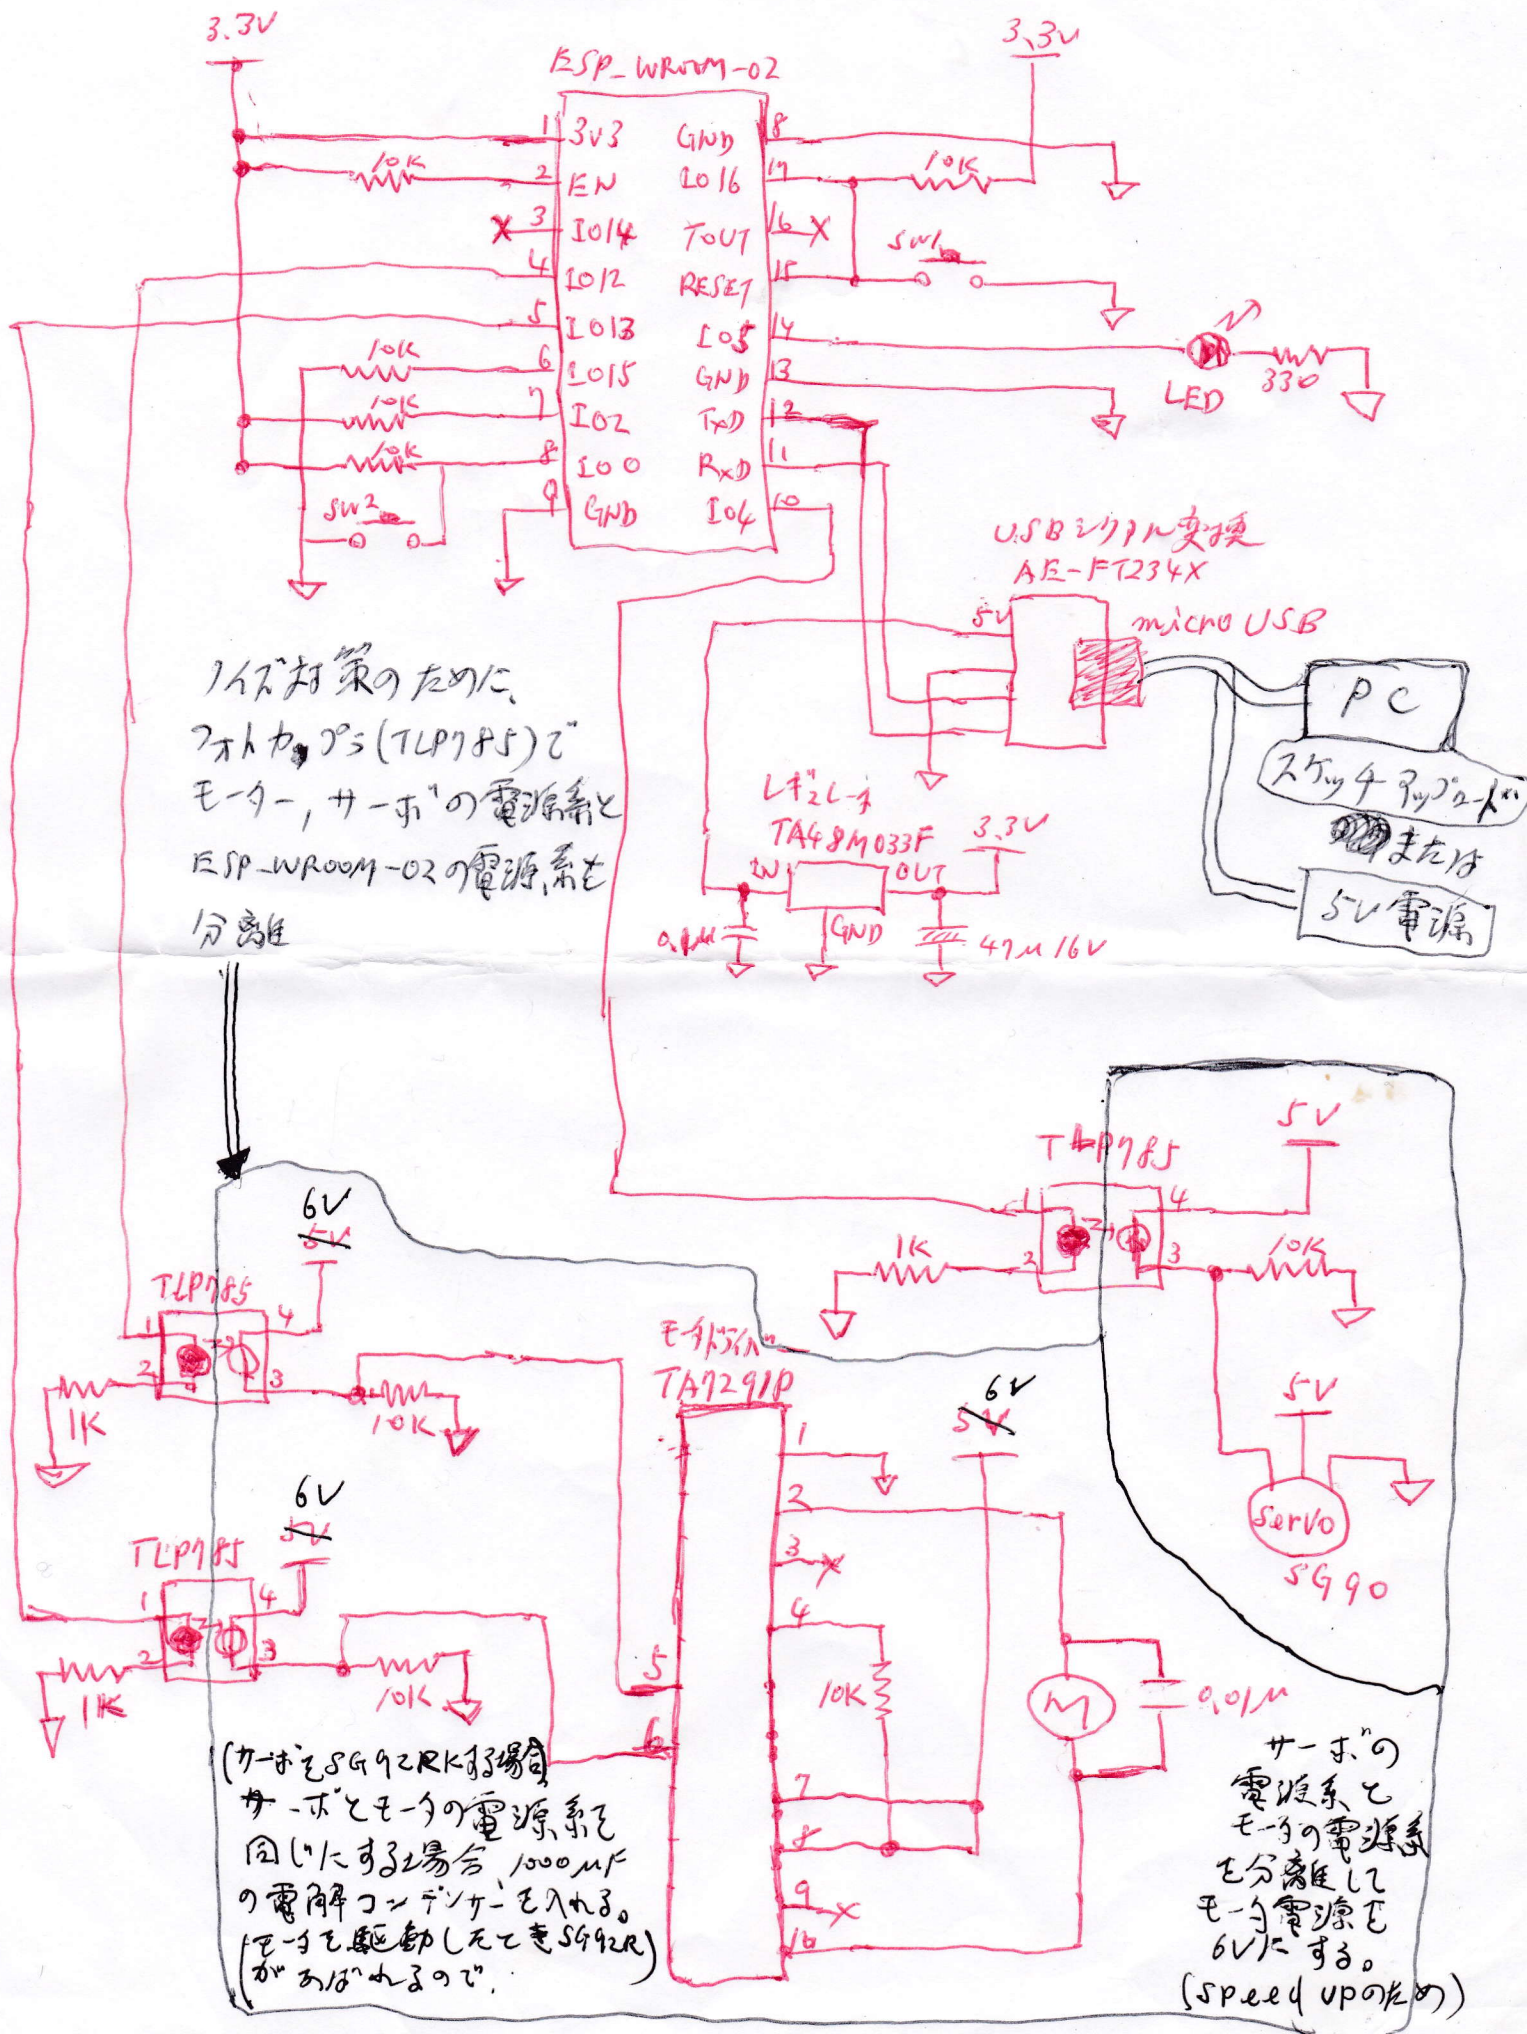 3.3V
3.3V
ESP_WROOM-02
1 3V3 GND 8
10K 2 EN IO16 17 10K
3 IO14 TOUT 16
SW1
4 IO12 RESET 15
5 IO13 IO5 14
10K 6 IO15 GND 13
LED 330
10K 7 IO2 TXD 12
10K 8 IO0 RXD 11
SW2 9 GND IO4 10
USBシリアル変換
AE-FT234X
5V
micro USB
PC
スケッチアップロード
または
5V電源
ノイズ対策のために、
フォトカプラ(TLP785)で
モーター,サーボの電源系と
ESP_WROOM-02の電源系を
分離
レギュレータ
TA48M033F
3.3V
IN OUT
GND
0.1μ
47μ16V
5V
TLP785
1 4
1K 2 3 10K
5V
Servo
SG90
6V
5V
TLP785
1 4
2 3
1K 10K
6V
5V
TLP785
1 4
2 3
1K 10K
モータドライバ
TA7291P
6V
5V
1
2
3
4
5
6
10K
7
8
9
10
M
0.01μ
(サーボをSG92Rにする場合)
サーボとモータの電源系を
同じにする場合、1000μF
の電解コンデンサーを入れる。
(モータを駆動したときSG92R)
があばれるので.
サーボの
電源系と
モータの電源系
を分離して
モータ電源を
6Vにする。
(speed upのため)